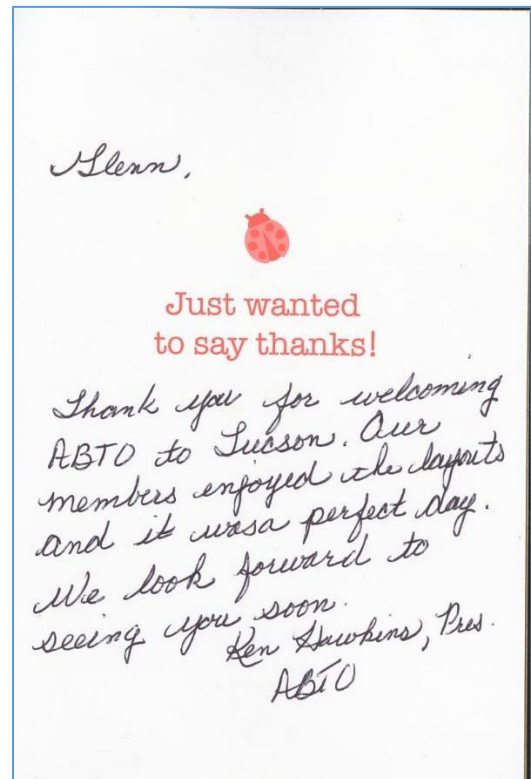 Glenn,
Just wanted
to say thanks!
Thank you for welcoming
ABTO to Tucson. Our
members enjoyed the layouts
and it wasa perfect day.
We look forward to
seeing you soon.
Ken Hawkins, Pres.
ABTO